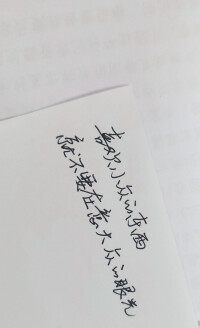 喜欢小众的东西
就不要在意大众的眼光